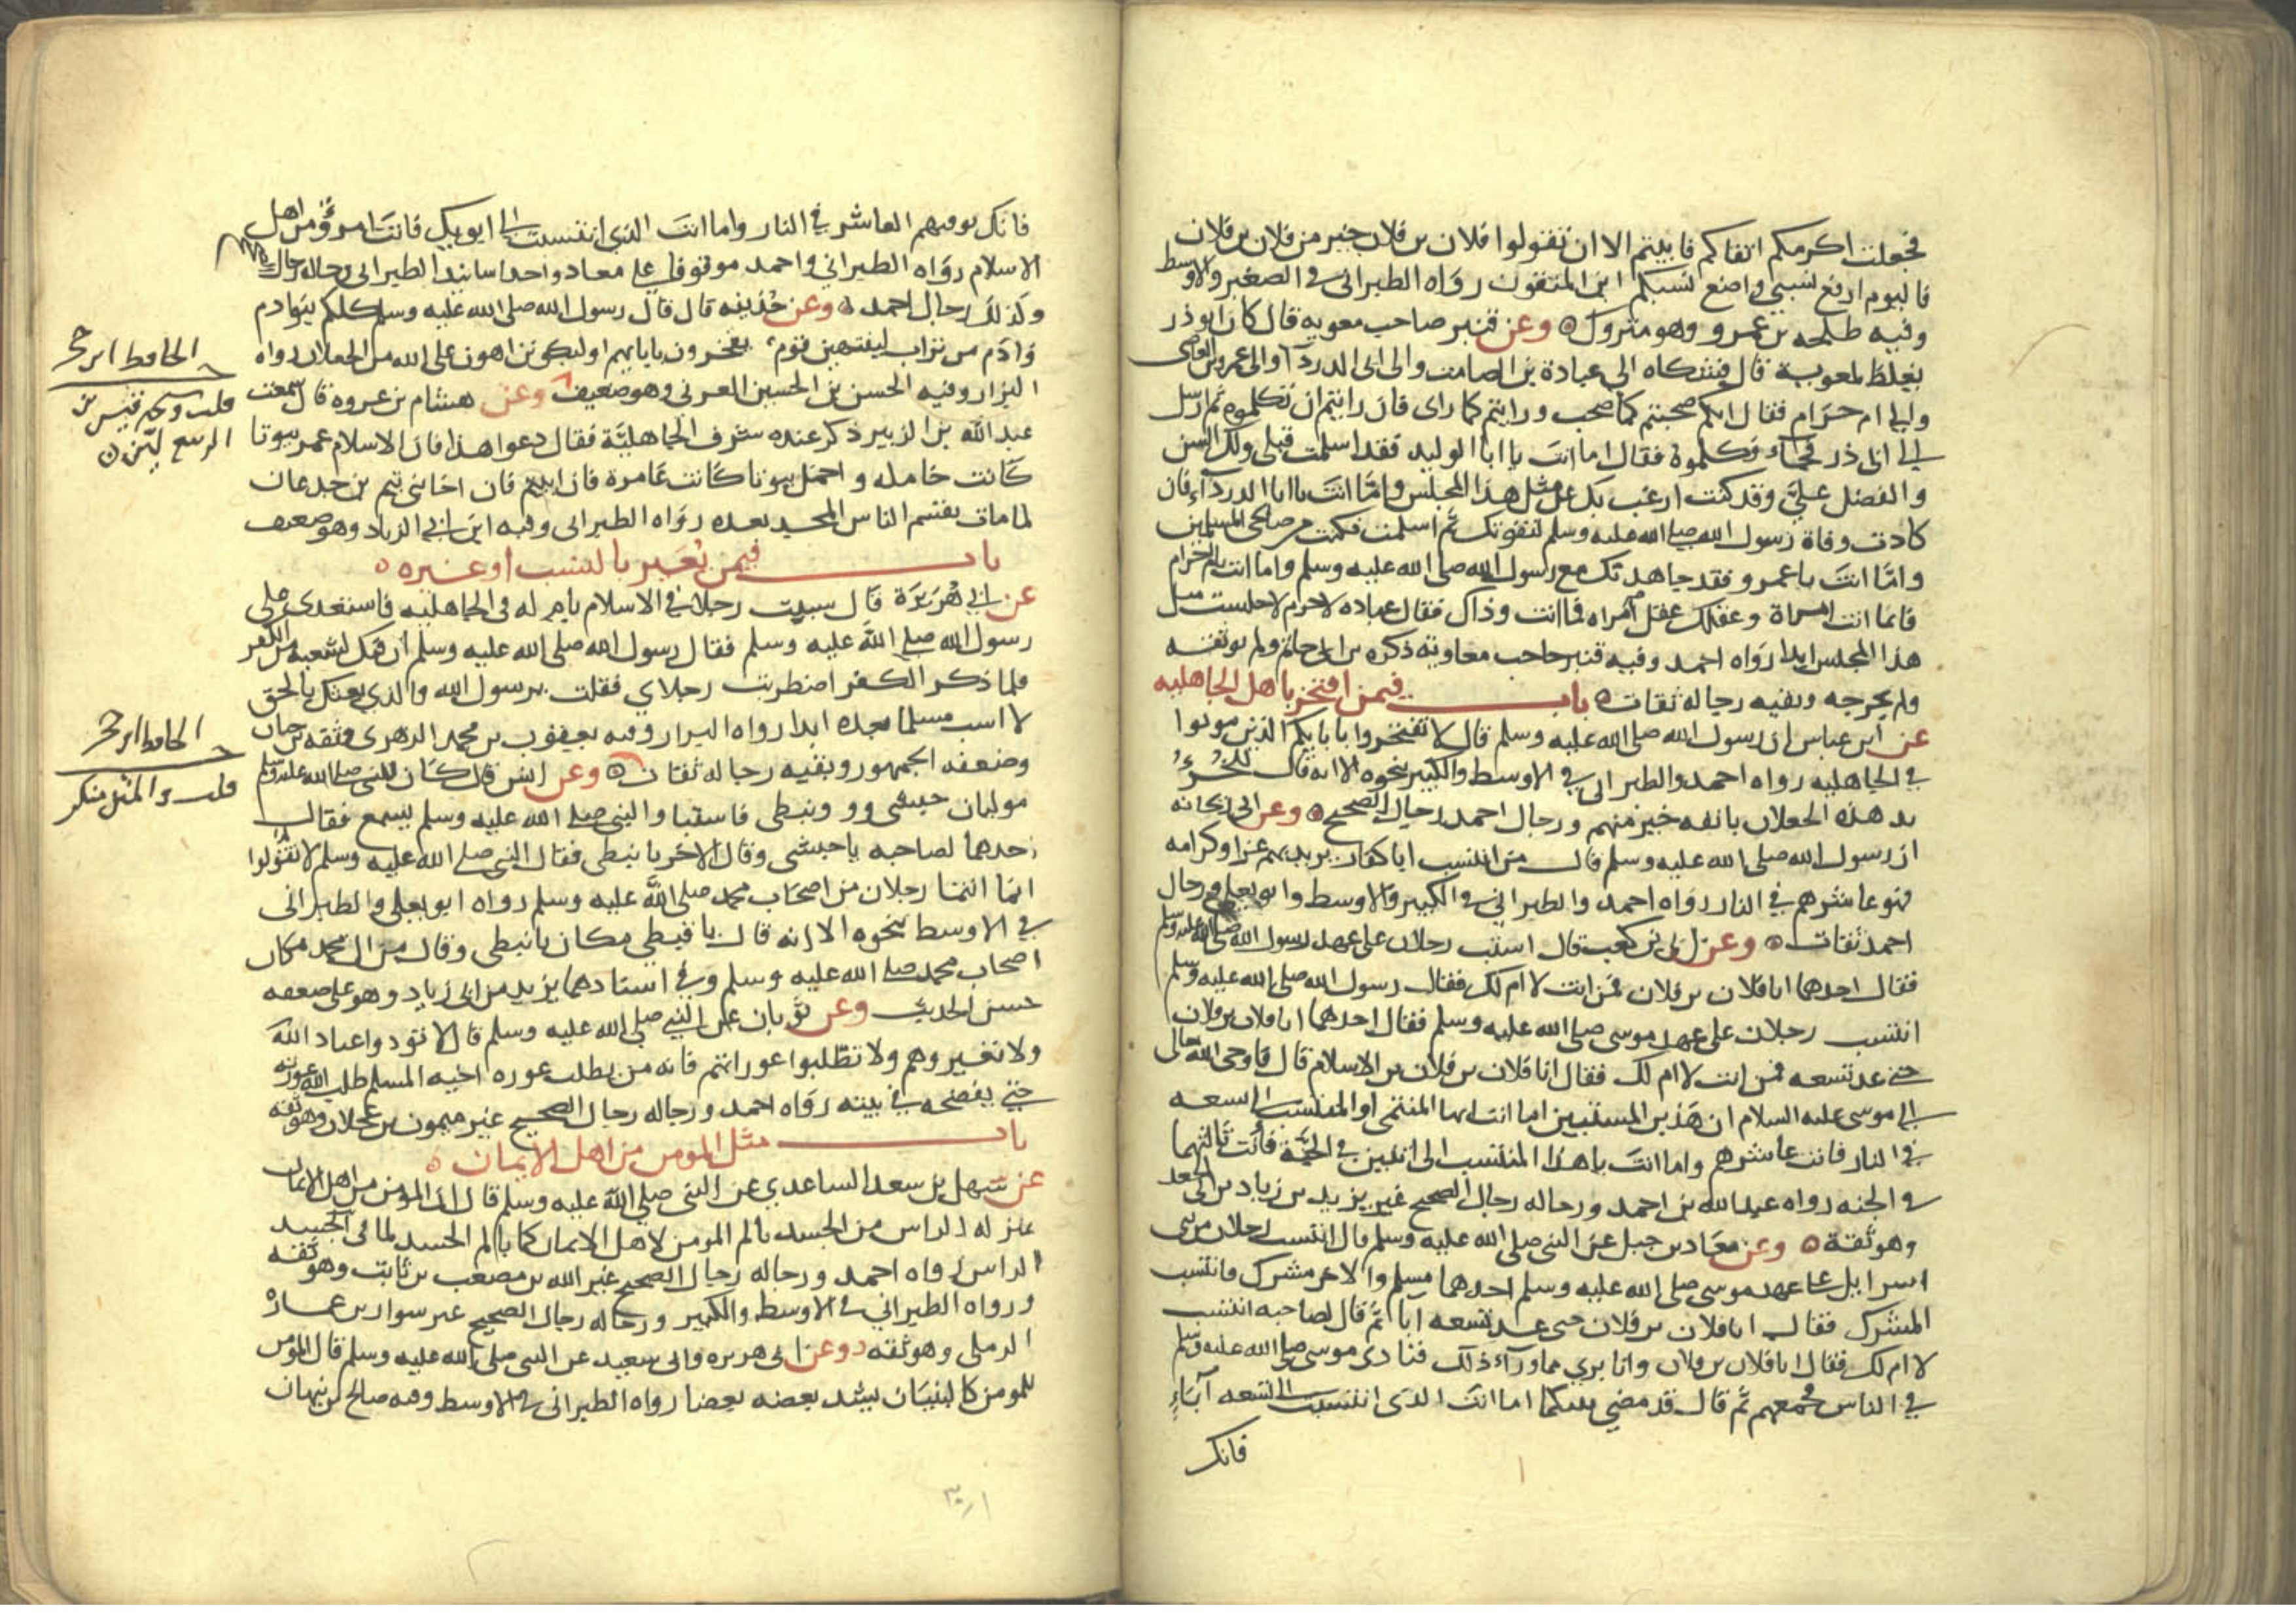 فجعلت اكرمكم اتقاكم فابيتم الا ان تقولوا فلان بن فلان خير من فلان بن فلان
فاليوم ارفع نسبي واضع نسبكم اين المتقون رواه الطبراني في الصغير والاوسط
وفيه طلحه بن عمرو وهو متروك ه وعن قنبر صاحب معويه قال كان ابو ذر
يغلظ لمعوية قال فشكاه الى عبادة بن الصامت والى ابي الدردآ والى عمرو بن العاصى
والى ام حرام فقال انكم صحبتم كما صحب ورايتم كما راى فان رايتم ان تكلموه ثم ارسل
الى ابي ذر فجاء فكلموه فقال اما انت يا ابا الوليد فقد اسلمت قبلى ولك السن
والفضل عليَّ وقد كنت ارغب بك عن مثل هذا المجلس واما انت يا ابا الدرداء فان
كادت وفاة رسول الله صلى الله عليه وسلم لتفوتك ثم اسلمت فكنت من صالحي المسلمين
واما انت يا عمرو فقد جاهدتك مع رسول الله صلى الله عليه وسلم واما انت يا ام حرام
فانما انت امراة وعقلك عقل امراه فما انت وذاك فقال عباده لا جرم لا جلست مثل
هذا المجلس ابدا رواه احمد وفيه قنبر حاجب معاوية ذكره بن ابي حاتم ولم يوثقه
ولم يجرحه وبقيه رجاله ثقات ه باب فيمن افتخر باهل الجاهليه
عن ابن عباس ان رسول الله صلى الله عليه وسلم قال لا تفتخروا بابايكم الذين موتوا
في الجاهليه رواه احمد والطبراني في الاوسط والكبير بنحوه الا انه قال للخُرْءُ
يد هذه الجعلان بانفه خير منهم ورجال احمد رجال الصحيح ه وعن ابي ريحانه
ان رسول الله صلى الله عليه وسلم قال من انتسب ابا كفار يريد بهم عزا وكرامه
فهو عاشرهم في النار رواه احمد والطبراني في الكبير والاوسط وابو يعلى ورجال
احمد ثقات ه وعن ابي بن كعب قال انتسب رجلان على عهد رسول الله صلى الله عليه وسلم
فقال احدهما انا فلان بن فلان فمن انت لا ام لك فقال رسول الله صلى الله عليه وسلم
انتسب رجلان على عهد موسى صلى الله عليه وسلم فقال احدهما انا فلان بن فلان
حتى عد تسعه فمن انت لا ام لك فقال انا فلان بن فلان بن الاسلام قال فاوحى الله تعالى
الى موسى عليه السلام ان هذين المنتسبين اما انت ايها المنتمى او المنتسب الى تسعه
في النار فانت عاشرهم واما انت يا هذا المنتسب الى اثنين في الجنة فانت ثالثهما
في الجنه رواه عبد الله بن احمد ورجاله رجال الصحيح غير يزيد بن زياد بن ابي الجعد
وهو ثقة ه وعن معاذ بن جبل عن النبى صلى الله عليه وسلم قال انتسب رجلان من بنى
اسرايل على عهد موسى صلى الله عليه وسلم احدهما مسلم والاخر مشرك فانتسب
المشرك فقال انا فلان بن فلان حتى عد تسعه ابا ثم قال لصاحبه انتسب
لا ام لك فقال انا فلان بن فلان وانا بري مما ورآء ذلك فنادى موسى صلى الله عليه وسلم
في الناس فجمعهم ثم قال قد قضي بينكما اما انت الذى انتسبت الى تسعه آباء
فانك
فانك توفيهم العاشر في النار واما انت الذى انتسبت الى ابويك فانت امرؤ من اهل
الاسلام رواه الطبراني واحمد موقوفا على معاذ واحد اسانيد الطبرانى رجاله رجال الصحيح
وكذلك رجال احمد ه وعن حذيفه قال قال رسول الله صلى الله عليه وسلم كلكم بنو ادم
وادم من تراب لينتهين قوم يفخرون بابايهم او ليكونن اهون على الله من الجعلان رواه
البزار وفيه الحسن بن الحسين العرنى وهو ضعيف وعن هشام بن عروه قال سمعت
عبد الله بن الزبير ذكر عنده شرف الجاهليّة فقال دعوا هذا فان الاسلام عمر بيوتا
كانت خامله واخمل بيوتا كانت عامرة فان اخا بنى تيم بن جدعان
لما مات يقتسم الناس المجد بعده رواه الطبرانى وفيه ابن ابي الزناد وهو ضعيف
باب فيمن يُعَير بالنسب او غيره ه
عن ابي هُرَيْرَة قال سببت رجلا في الاسلام بام له في الجاهليه فاستعدى على
رسول الله صلى الله عليه وسلم فقال رسول الله صلى الله عليه وسلم ان فيك لشعبه من الكفر
فلما ذكر الكفر اضطربت رجلاي فقلت يرسول الله والذي بعثك بالحق
لا اسب مسلما بعده ابدا رواه البزار وفيه يعقوب بن محمد الزهرى وثقه بن حبان
وضعفه الجمهور وبقيه رجاله ثقات ه وعن انس قال كان للنبي صلى الله عليه وسلم
موليان حبشى وو ونبطى فاستبا والنبى صلى الله عليه وسلم يسمع فقال
احدهما لصاحبه يا حبشى وقال الاخر يا نبطى فقال النبى صلى الله عليه وسلم لا تقولوا
انما انتما رجلان من اصحاب محمد صلى الله عليه وسلم رواه ابو يعلى والطبرانى
في الاوسط بنحوه الا انه قال يا قبطى مكان يا نبطى وقال من ال محمد مكان
اصحاب محمد صلى الله عليه وسلم وفي اسنادهما يزيد بن ابي زياد وهو على ضعفه
حسن الحديث وعن ثوبان عن النبي صلى الله عليه وسلم قال لا توذوا عباد الله
ولا تعيروهم ولا تطلبوا عوراتهم فانه من يطلب عوره اخيه المسلم طلب الله عورته
حتى يفضحه في بيته رواه احمد ورجاله رجال الصحيح غير ميمون بن عجلان وهو ثقه
باب مثل المومن من اهل الايمان ه
عن سهل بن سعد الساعدي عن النبى صلى الله عليه وسلم قال ان المومن من اهل الايمان
بمنزله الراس من الجسد يالم المومن لاهل الايمان كما يالم الجسد لما في الجسد
الراس رواه احمد ورجاله رجال الصحيح غير الله بن مصعب بن ثابت وهو ثقه
ورواه الطبراني في الاوسط والكبير ورجاله رجال الصحيح غير سوار بن عماره
الرملى وهو ثقه ه وعن ابي هريره وابى سعيد عن النبى صلى الله عليه وسلم قال المومن
للمومن كالبنيان يشد بعضه بعضا رواه الطبرانى في الاوسط وفيه صالح بن نبهان
الحافظ ابن حجر
قلت وكم قيس بن
الربيع لين ه
الحافظ ابن حجر
قلت والمتن منكر